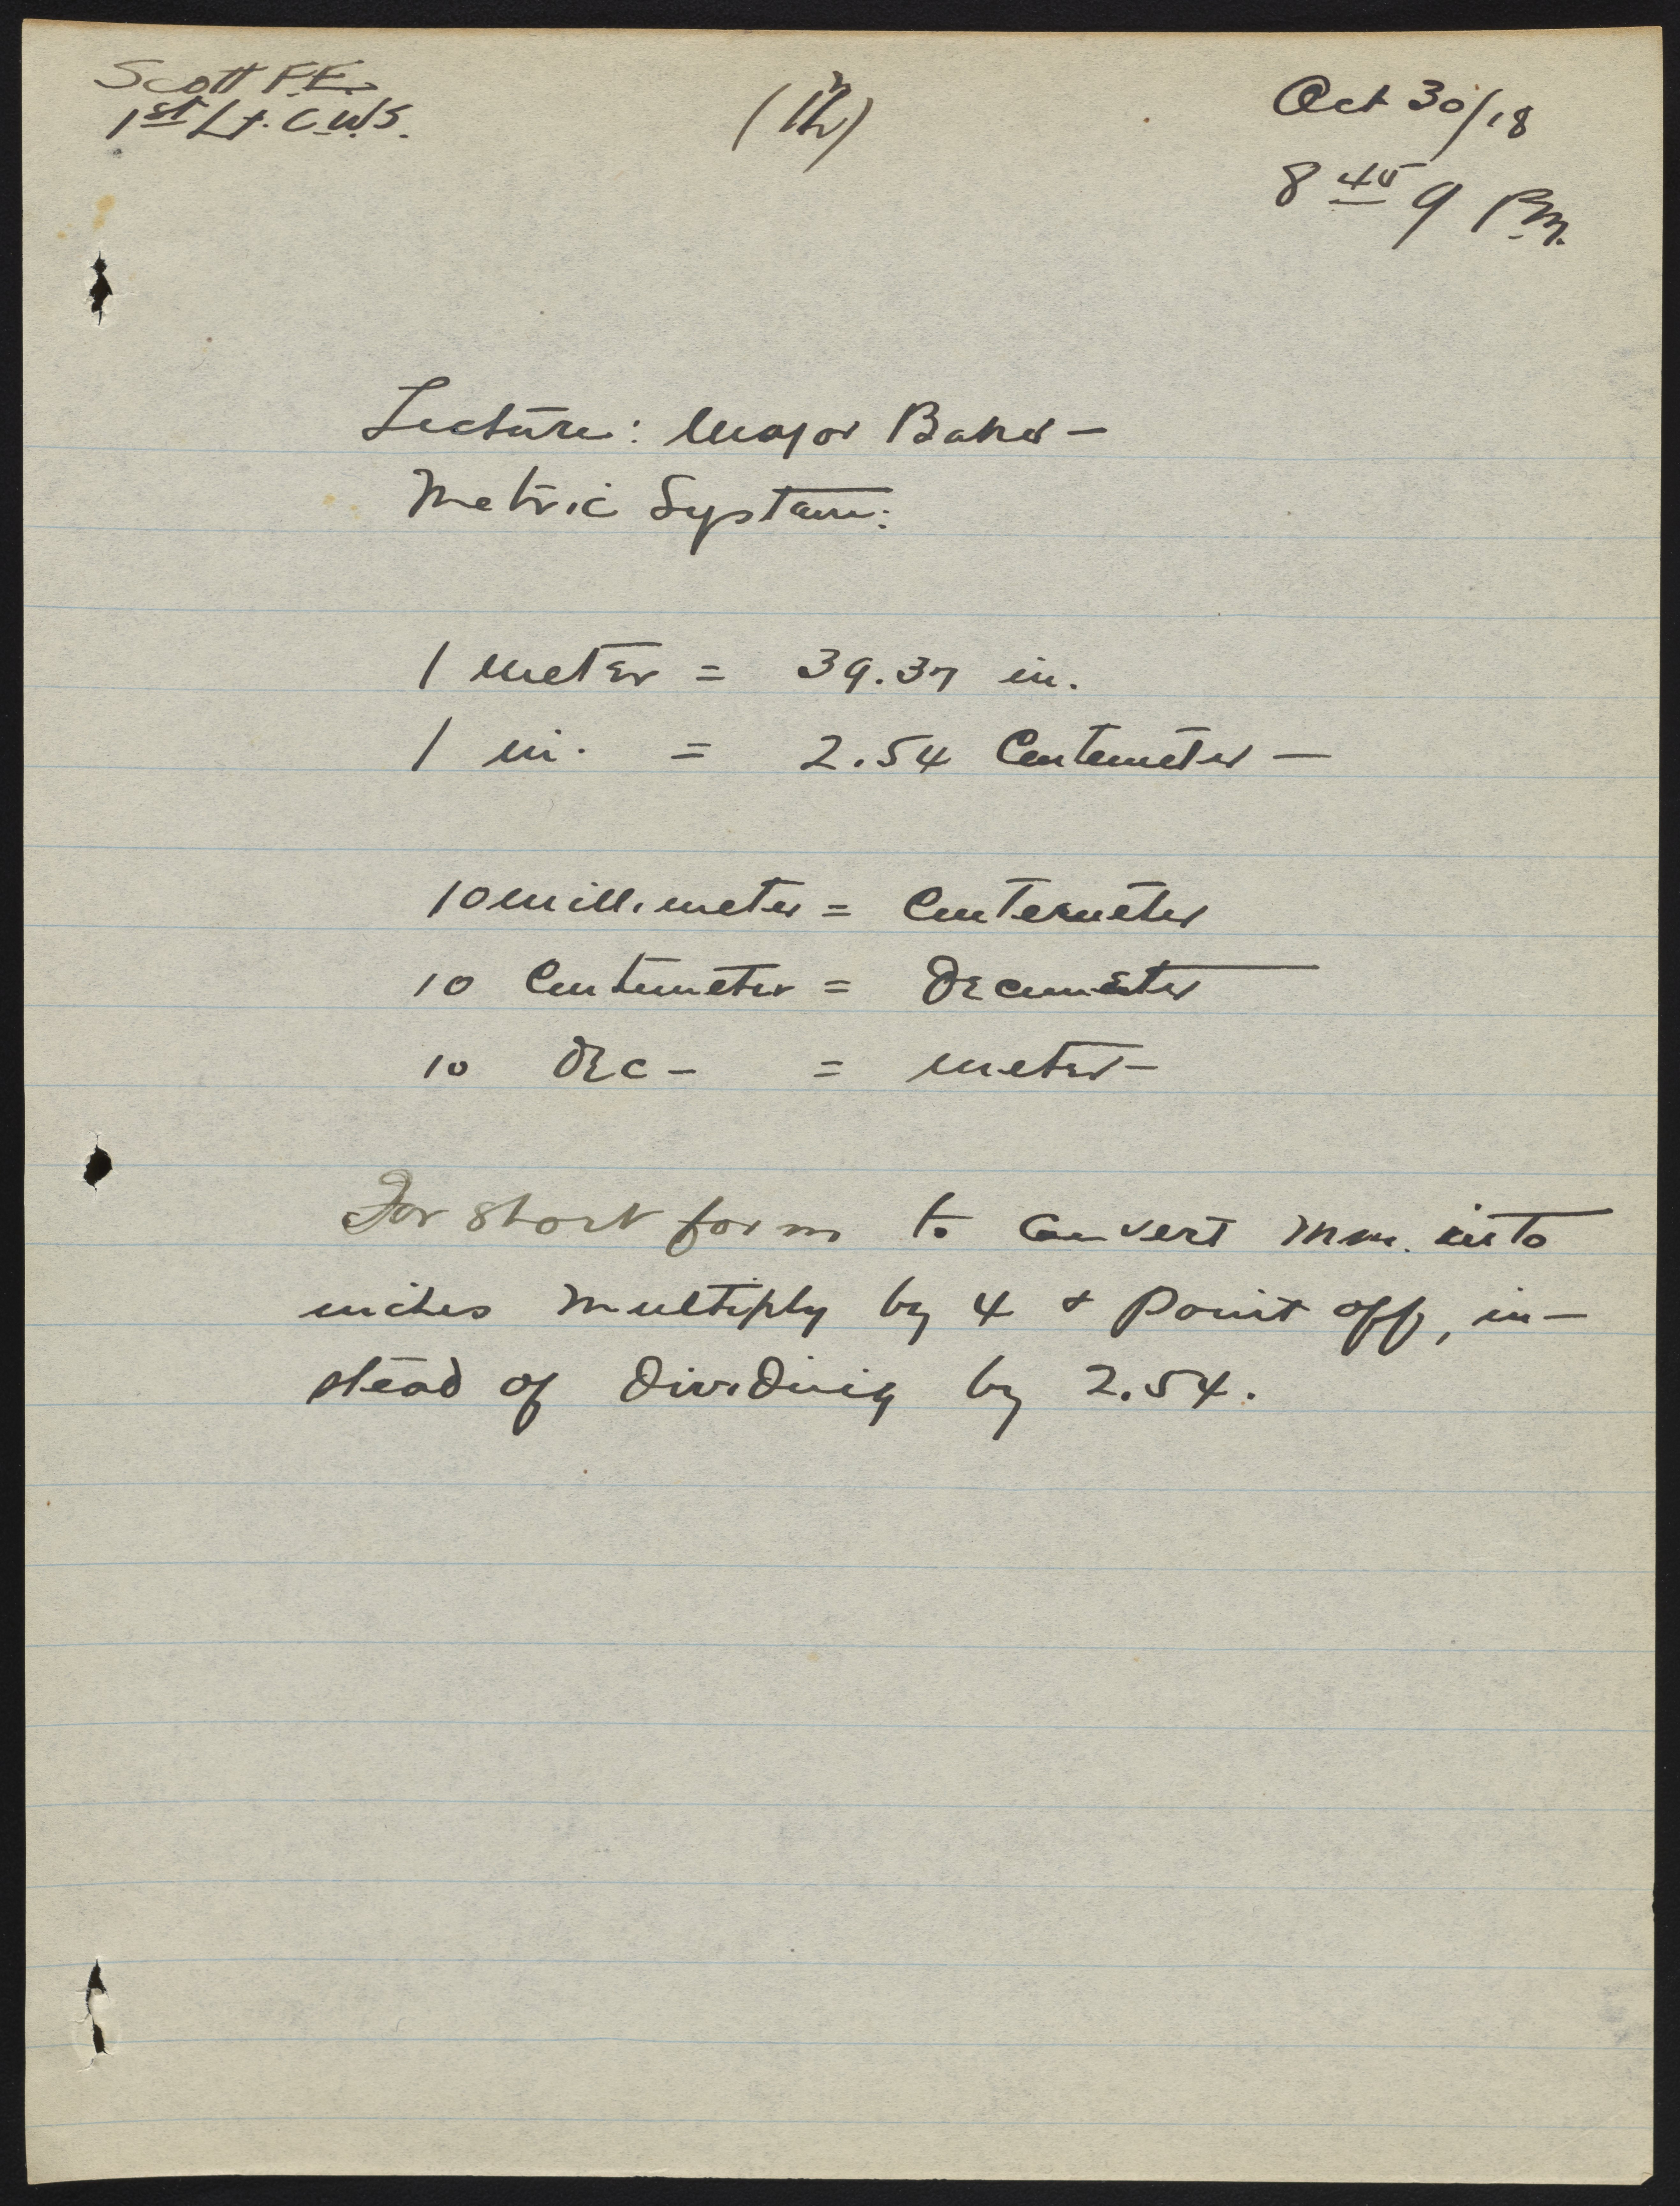 Scott F.E.
1st Lt. C.W.S.
Oct 30/18
8 45 9 P.M.
Lecture: Major Baker -
Metric System:
1 meter = 39.37 in.
1 in. = 2.54 Centemeter -
10 millimeter = Centemeter
10 Centemeter = Decemeter
10 Dec - = meter -
For short form to convert mm. into
inches multiply by 4 & point off, in-
stead of dividing by 2.54.